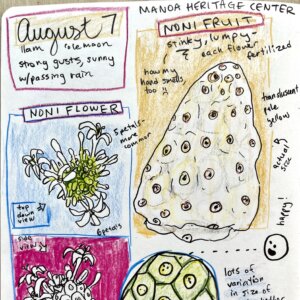 MANOA HERITAGE CENTER
August 7
11am
strong gusts, sunny
w/passing rain
NONI FRUIT
stinky, lumpy-
each flower
fertilized
how my
hand smells
too
translucent
pale
yellow
actual
size
happy!
NONI FLOWER
5 petals-
more
common
6 petals
top
down
view
side
view
lots of
variation
in size of